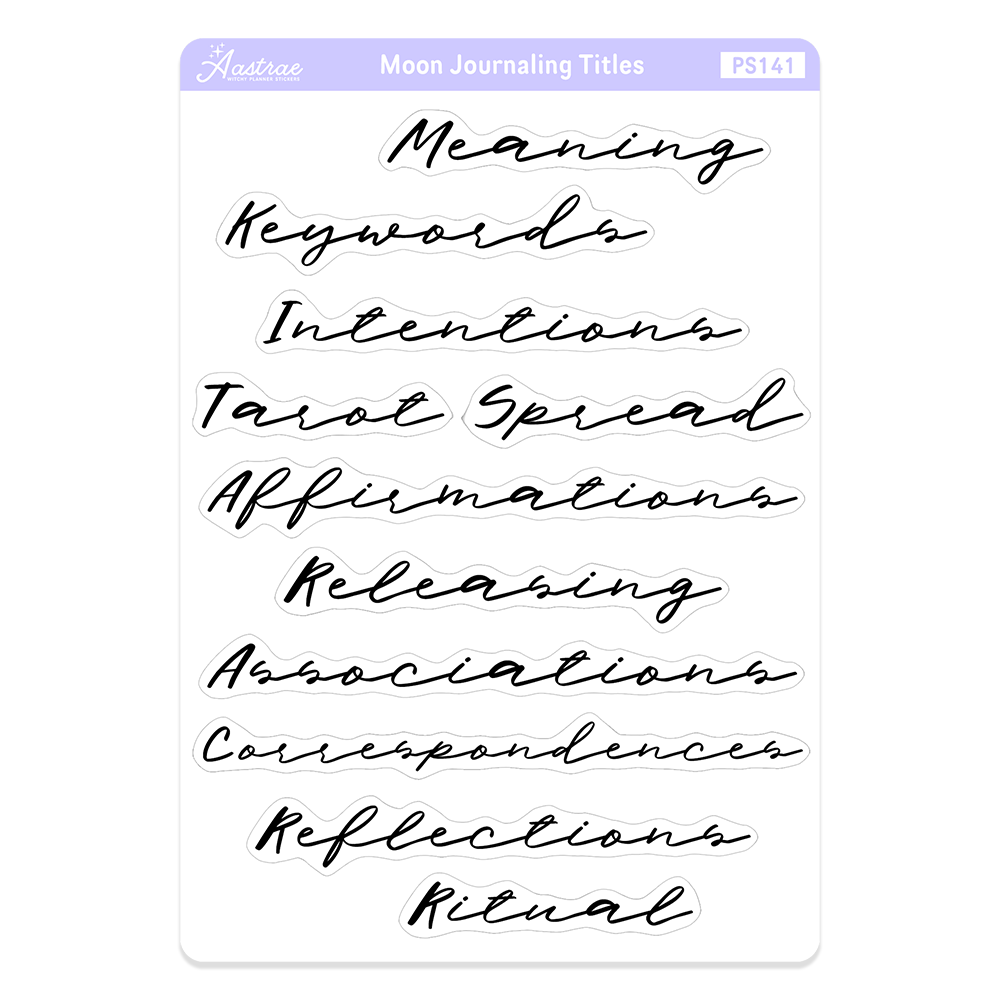 Aastrae
WITCHY PLANNER STICKERS
Moon Journaling Titles
PS141
Meaning
Keywords
Intentions
Tarot Spread
Affirmations
Releasing
Associations
Correspondences
Reflections
Ritual